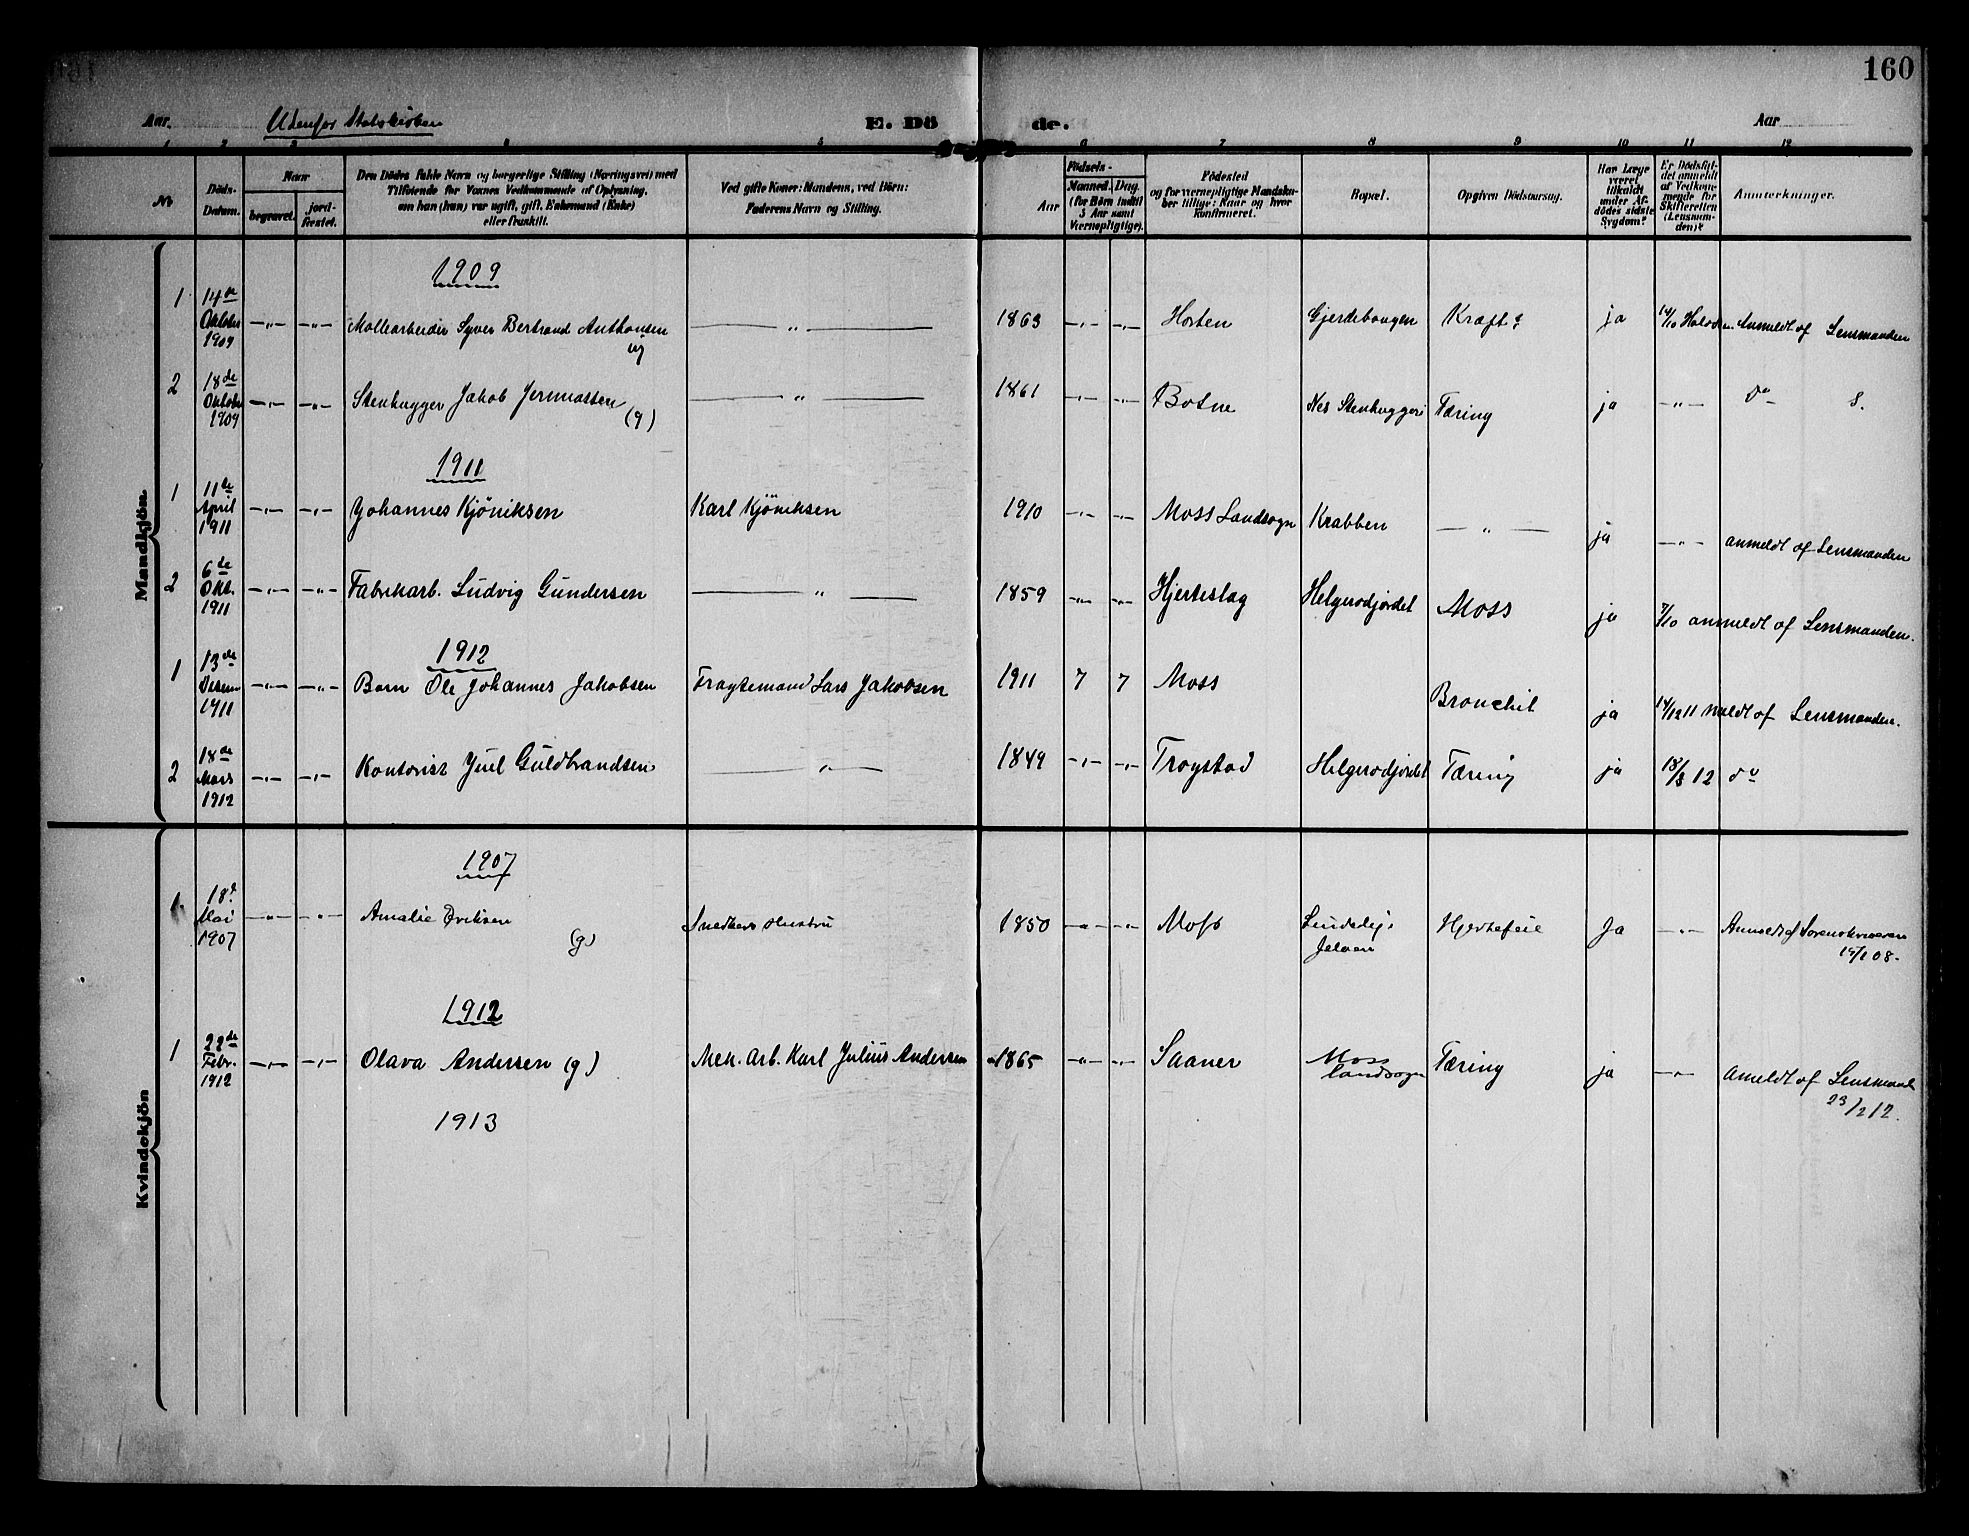 160
Aar. Udenfor Statskirken E. Dö de. Aar
1 2 3 4 5 6 7 8 9 10 11 12
No
Döds-
Datum.
Naar
begravet.
jord-
fæstet.
Den Dödes fulde Navn og borgerlige Stilling (Næringsvei) med
Tilföiende for Voxnes Vedkommende af Oplysning,
om han (hun) var ugift, gift, Enkemand (Enke)
eller fraskilt.
Ved gifte Koner: Mandens, ved Börn:
Faderens Navn og Stilling.
Aar
Födsels-
Maaned. Dag.
(for Börn indtil
3 Aar samt
Værnepligtige).
Födested
og for værnepligtige Mandskaber
tillige: Naar og hvor
konfirmeret.
Bopæl.
Opgiven Dödsaarsag.
Har Læge
været
tilkaldt
under Af-
dödes sidste
Sygdom?
Er Dödsfal-
det anmeldt
af Vedkom-
mende for
Skifteretten
(Lensman-
den)?
Anmærkninger.
Mandkjön
1909
1 14de Oktober 1909 —„— —„— Mollearbeider Syver Bertrand Anthonsen — „ — 1863 —„— —„— Horten Gjerdebaugen Kræft? ja 14/10 Anmeldt af Lensmanden
ug
2 18de Oktober 1909 —„— —„— Stenhugger Jakob (g) — „ — 1861 —„— —„— Botne Nes Stenhuggeri Tæring ja —„— do
1911
1 11te April 1911 —„— —„— Johannes Kjöniksen Karl Kjöniksen 1910 —„— —„— Moss Landsogn Krabben — „ — ja —„— anmeldt af Lensmanden
2 6te Okt. 1911 —„— —„— Fabrikarb. Ludvig Gundersen — „ — 1859 —„— —„— Hjerteslag Helgerodjordet Moss ja 7/10 anmeldt af Lensmanden.
1912
1 13de Desem 1911 —„— —„— Barn Ole Johannes Jakobsen Fragtemand Lars Jakobsen 1911 7 7 Moss Bronchit ja 14/12 11 meldt af Lensmanden.
2 18de Mars 1912 —„— —„— Kontorist Juel Guldbrandsen — „ — 1849 —„— —„— Trogstad Helgerodjordet Tæring ja 18/3 12 do
Kvindekjön
1907
1 18d Mai 1907 —„— —„— Amalie Eriksen (g) Snedkers Hustru 1850 —„— —„— Moss Jeløen Hjertefeil Ja —„— Anmeldt af Sorenskriveren
1912
1 22de Febr. 1912 —„— —„— Olava Andersen (g) Mek. Arb. Karl Julius Andersen 1865 —„— —„— Saaner Moss landsogn Tæring ja —„— Ameldt af Lensmand
23/2 12.
1913